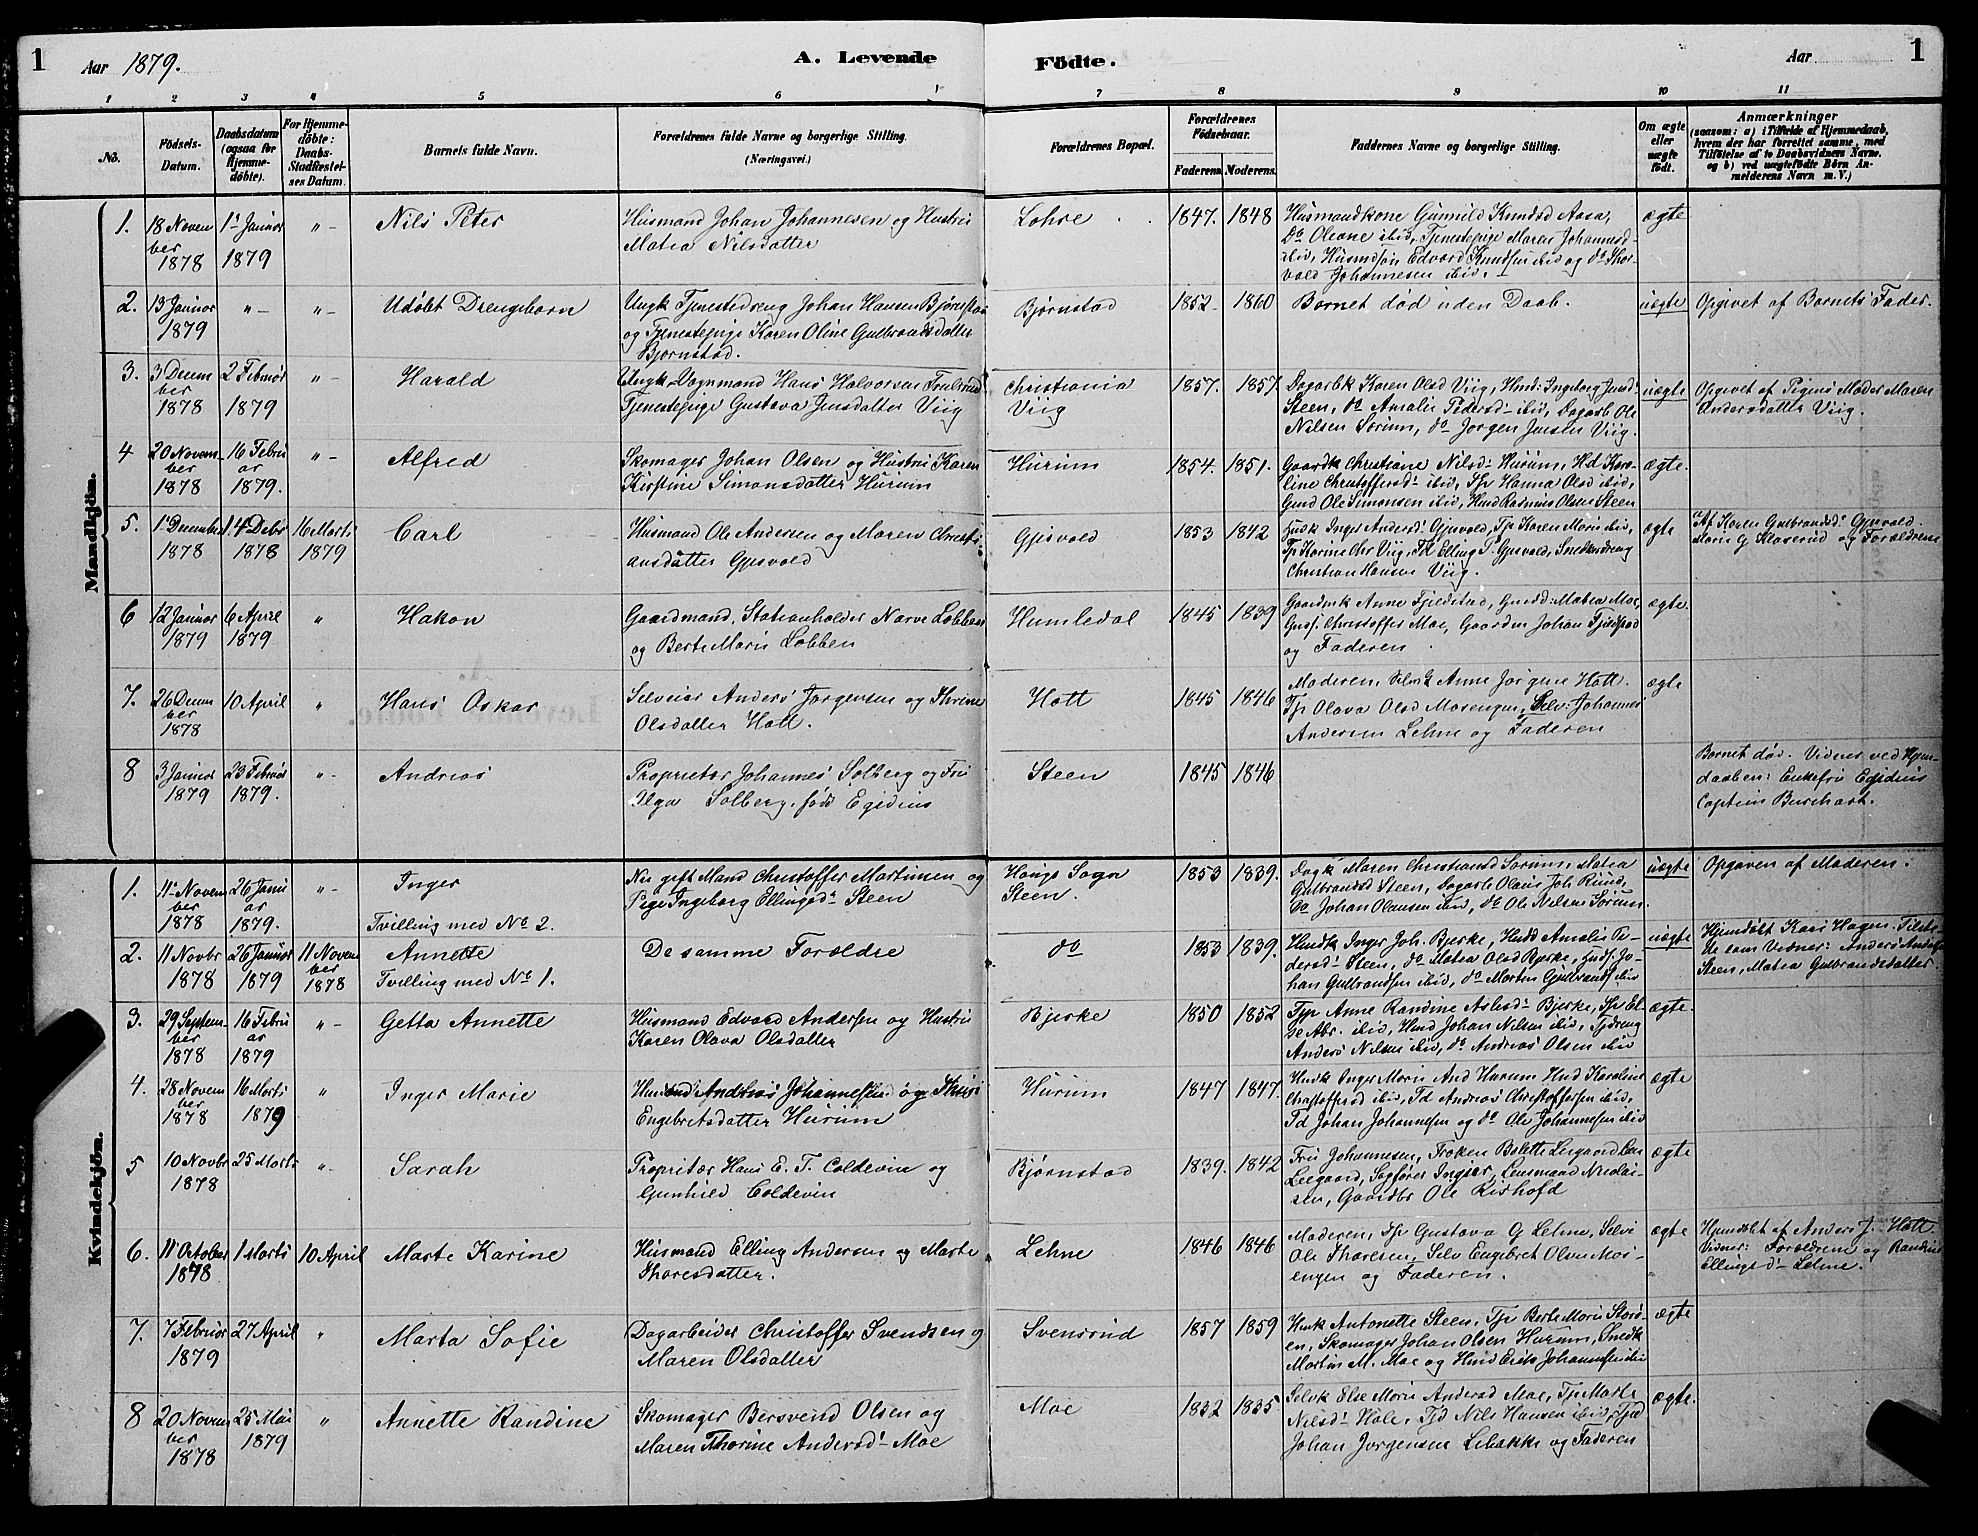 1 Aar 1879. A. Levende Födte. Aar 1
1 2 3 4 5 6 7 8 9 10 11
No. Födsels-Datum. Daabsdatum (ogsaa for Hjemme-döbte). For Hjemme-döbte: Daabs-Stadfæstel-ses Datum. Barnets fulde Navn. Forældrenes fulde Navne og borgerlige Stilling. (Næringsvei.) Forældrenes Bopæl. Forældrenes Födselsaar. Faderens Moderens. Faddernes Navne og borgerlige Stilling. Om ægte eller uægte födt.
Anmærkninger
(saasom: a) i Tilfælde af Hjemmedaab,
hvem der har forrettet samme, med
Tilföielse af to Daabsvidners Navne,
og b) ved uægtefödte Börn An-
melderens Navn m. V.)
Mandkjön.
1. 18 Novem 1 Januar "- Nils Peter Husmand Johan Johannesen og Hustru Lohre 1847. 1848 Husmandkone Gunnild Knudsd Aasa, ægte
ber 1878 1879 Matea Nilsdatter Do Oleane ibid, Tjenestepige Maren Johannesd-
ibid, Husmdsøn Edvard Knudsen ibid og do Thor-
vald Johannesen ibid.
2. 13 Januar "- "- Udöbt Drengebarn Ungk Tjenestedreng Johan Hansen Bjørnstad Bjørnstad 1852- 1860 Barnet død uden Daab. uægte Opgivet af Barnets Fader.
1879 og Tjenestepige Karen Oline Gulbrandsdatter
Bjørnstad.
3. 3 Decem 2 Februar "- Harald Ungk Dagmand Hans Halvorsen Christiania 1857. 1857 Dagarbk Karen Olsd Viig, Hmd: Ingeborg Jensd- uægte Opgivet af Pigens Moder Maren
ber 1878 1879 Tjenestepige Gustava Jensdatter Viig Viig Steen, do Amalie Pedersd- ibid, Dagarb Ole Andersdatter Viig.
Nilsen Sørum, do Jørgen Jensen Viig.
4 20 Novem- 16 Febru "- Alfred Skomager Johan Olsen og Hustru Karen Hurum 1854. 1851. Gaardk Christiane Nilsd: Hurum, Hd Karo- ægte.
ber 1878 ar 1879. Kirstine Simonsdatter Hurum line Christoffersd- ibid, Tp Hanna Olsd ibid,
Gmd Ole Simonsen ibid, Hmd Rasmus Olsen Steen
5. 1 December 14 Debr 16 Marts Carl Husmand Ole Andersen og Maren Christi- Gjesvold 1853 1842 Husk Inger Andersd Gjesvold, Tp Karen Marie ibid, ægte Af Karen Gulbrandsd. Gjesvold.
1878 1878 1879 ansdatter Gjesvold Tp Karine Chr Viig, Td Elling P. Gjesvold, Snedkerdreng Marie G Klaserud og Forældrene
Christian Hansen Viig.
6 12 Januar 6 April " Hakon Gaardmand, Stationholder Narve Løbben Humledal 1845 1839 Gaardmk Anne Fjeldstad, Gmdd: Matea Moe, ægte.
1879 1879 og Berte Marie Løbben Gmds. Christoffer Moe, Gaardm Johan Fjeldstad
og Faderen.
7. 26 Decem 10 April " Hans Oskar Selveier Anders Jørgensen og Thrine Høtt 1845 1846 Moderen, Selvk Anne Jørgine Høtt. ægte
ber 1878 Olsdatter Høtt. Tp Olava Olsd Mosengen, Selv: Johannes
Andersen Lehne og Faderen
8 3 Januar 23 Februar "- Andreas Proprietær Johannes Solberg og Fru Steen 1845 1846 Barnet død. Vidner ved Hjem-
1879 1879. Olga Solberg, født Egidius daaben: Enkefru Egidius
Captein Burchart.
Kvindekjön.
1. 11 Novem 26 Janu "- Inger Nu gift Mand Christoffer Martinsen og Haugs Sogn 1853 1839. Dagk Maren Christiansd Sørum, Matea uægte Opgaven af Moderen.
ber 1878 ar 1879. Tvilling med No 2. Pige Ingeborg Ellingsd- Steen Steen. Gulbrandsd Steen, Dagarb Olaus Joh Rund,
Do Johan Olaussen ibid, do Ole Nilsen Sørum.
2. 11 Novbr 26 Januar 11 Novem Annette De samme Forældre do 1853 1839. Hmdk Inger Joh. Bjerke, Hmdd Amalie Pe- uægte Hjemdøbt Kari Hagen. Tilste-
1878 1879 ber 1878 Tvilling med No 1. dersd- Steen, do Matea Olsd Bjerke, Husf. Jo- de som Vidner: Anders
han Gulbrandsen ibid, do Morten Gulbrandsen ibid Steen, Matea Gulbrandsdatter.
3. 29 Septem- 16 Febru "- Getta Annette Husmand Edvard Andersen og Hustru Bjerke 1850 1852 Tp Anne Randine Aslesd- Bjerke, Tp El- ægte.
ber 1878 ar 1879 Karen Olava Olsdatter se Abr. ibid, Hmd Johan Nilsen ibid, Tjdreng
Anders Nilsen ibid, do Andreas Olsen ibid
4. 28 Novem 16 Marts " Inger Marie Husmand Andreas Johannesen og Hurum 1847 1847. Hmdk Inger Marie And Hurum Hmd Karoline ægte
ber 1878 1879 Engebretsdatter Hurum Christoffersd ibid, Td Andreas Christoffersen ibid,
Td Johan Johannesen og do Ole Johannesen ibid
5 10 Novbr 25 Marts "- Sarah Propritær Hans E. T. Coldevin og Bjørnstad 1839. 1842 Fru Johannesen, Frøken Bolette Leegaard ægte
1878 Gunhild Coldevin Leegaard, Sagfører Ingier, Lensmand Nicolai-
sen, Gaardbr Ole Rishofd
6. 11 October 1 Marts 10 April Marte Karine Husmand Elling Andersen og Marte Lehne 1846 1846 Moderen, Tp Gustava G Lehne, Selvei ægte Hjemdøbt af Anders J. Høtt
1878 Thoresdatter. Ole Thoresen, Selv Engebret Olsen Mos- Vidner: Forældrene og Randine
engen og Faderen. Ellingsd- Lehne.
7. 7 Februar 27 April " Marta Sofie Dagarbeider Christoffer Svendsen og Svensrud 1857 1859 Hmk Antonette Steen, Tp Berte Marie ægte
1879 Maren Olsdatter en, Skomager Johan Olsen Hurum, Snedk
Martin M. Moe og Hmd Erik Johannesen ibid
8 20 Novem 25 Mai " Annette Randine Skomager Bersvend Olsen og Moe 1832 1835 Selvk Else Marie Andersd Moe, Tp Marte ægte.
ber 1878 1879 Maren Thorine Andersd- Moe Nilsd- Hole, Tjd Nils Hansen ibid, Tjd
Johan Jørgensen Lebakke og Faderen